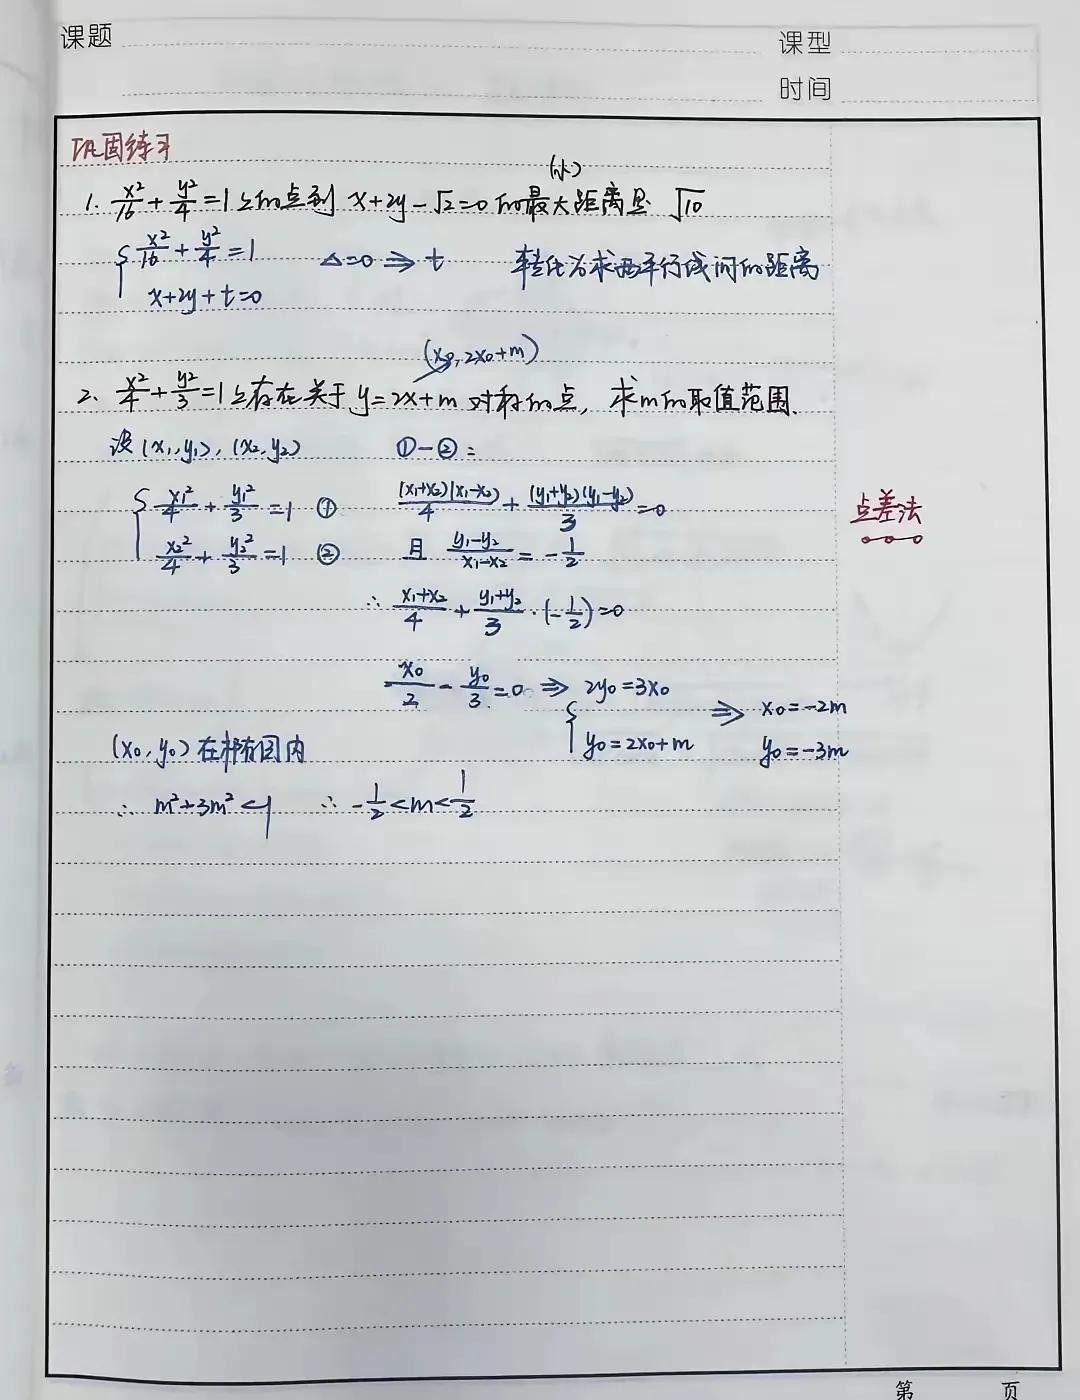 课题
课型
时间
巩固练习
(小)
1. x²/16 + y²/4 = 1 上的点到 x+2y-√2=0 的最大距离是 √10
{ x²/16 + y²/4 = 1
x+2y+t=0
Δ=0 ⇒ t 转化为求两平行线间的距离
(x₀, 2x₀+m)
2、 x²/4 + y²/3 = 1 上存在关于 y=2x+m 对称的点, 求m的取值范围.
设(x₁,y₁), (x₂,y₂) ①-②:
{ x₁²/4 + y₁²/3 = 1 ①
x₂²/4 + y₂²/3 = 1 ②
(x₁+x₂)(x₁-x₂)/4 + (y₁+y₂)(y₁-y₂)/3 = 0
点差法
且 (y₁-y₂)/(x₁-x₂) = -1/2
∴ (x₁+x₂)/4 + (y₁+y₂)/3 · (-1/2) = 0
x₀/2 - y₀/3 = 0 ⇒ { 2y₀=3x₀
y₀=2x₀+m
⇒ x₀=-2m
y₀=-3m
(x₀, y₀) 在椭圆内
∴ m²+3m²<1 ∴ -1/2<m<1/2
第 页